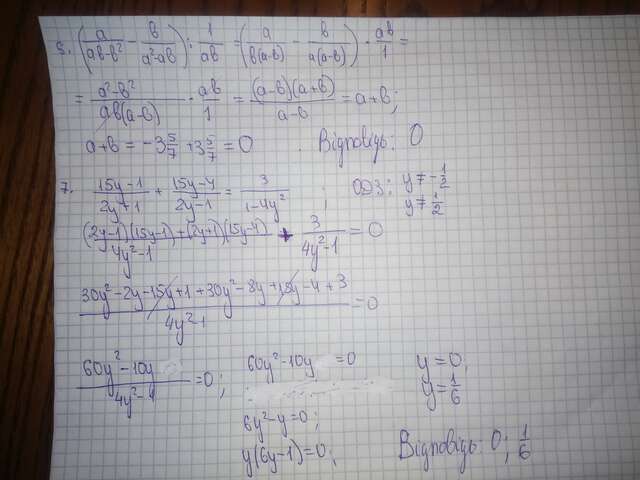 5. (a/(ab-b²) - b/(a²-ab)) : 1/(ab) = (a/(b(a-b)) - b/(a(a-b))) · ab/1 =
= (a²-b²)/(ab(a-b)) · ab/1 = ((a-b)(a+b))/(a-b) = a+b;
a+b = -3 5/7 + 3 5/7 = 0. Відповідь: 0
7. (15y-1)/(2y+1) + (15y-4)/(2y-1) = 3/(1-4y²); ОДЗ: y≠-1/2 y≠1/2
((2y-1)(15y-1)+(2y+1)(15y-4))/(4y²-1) + 3/(4y²-1) = 0
(30y²-2y-15y+1+30y²-8y+15y-4+3)/(4y²-1) = 0
(60y²-10y)/(4y²-1) = 0; 60y²-10y = 0 y=0;
6y²-y=0; y=1/6
y(6y-1)=0; Відповідь: 0; 1/6